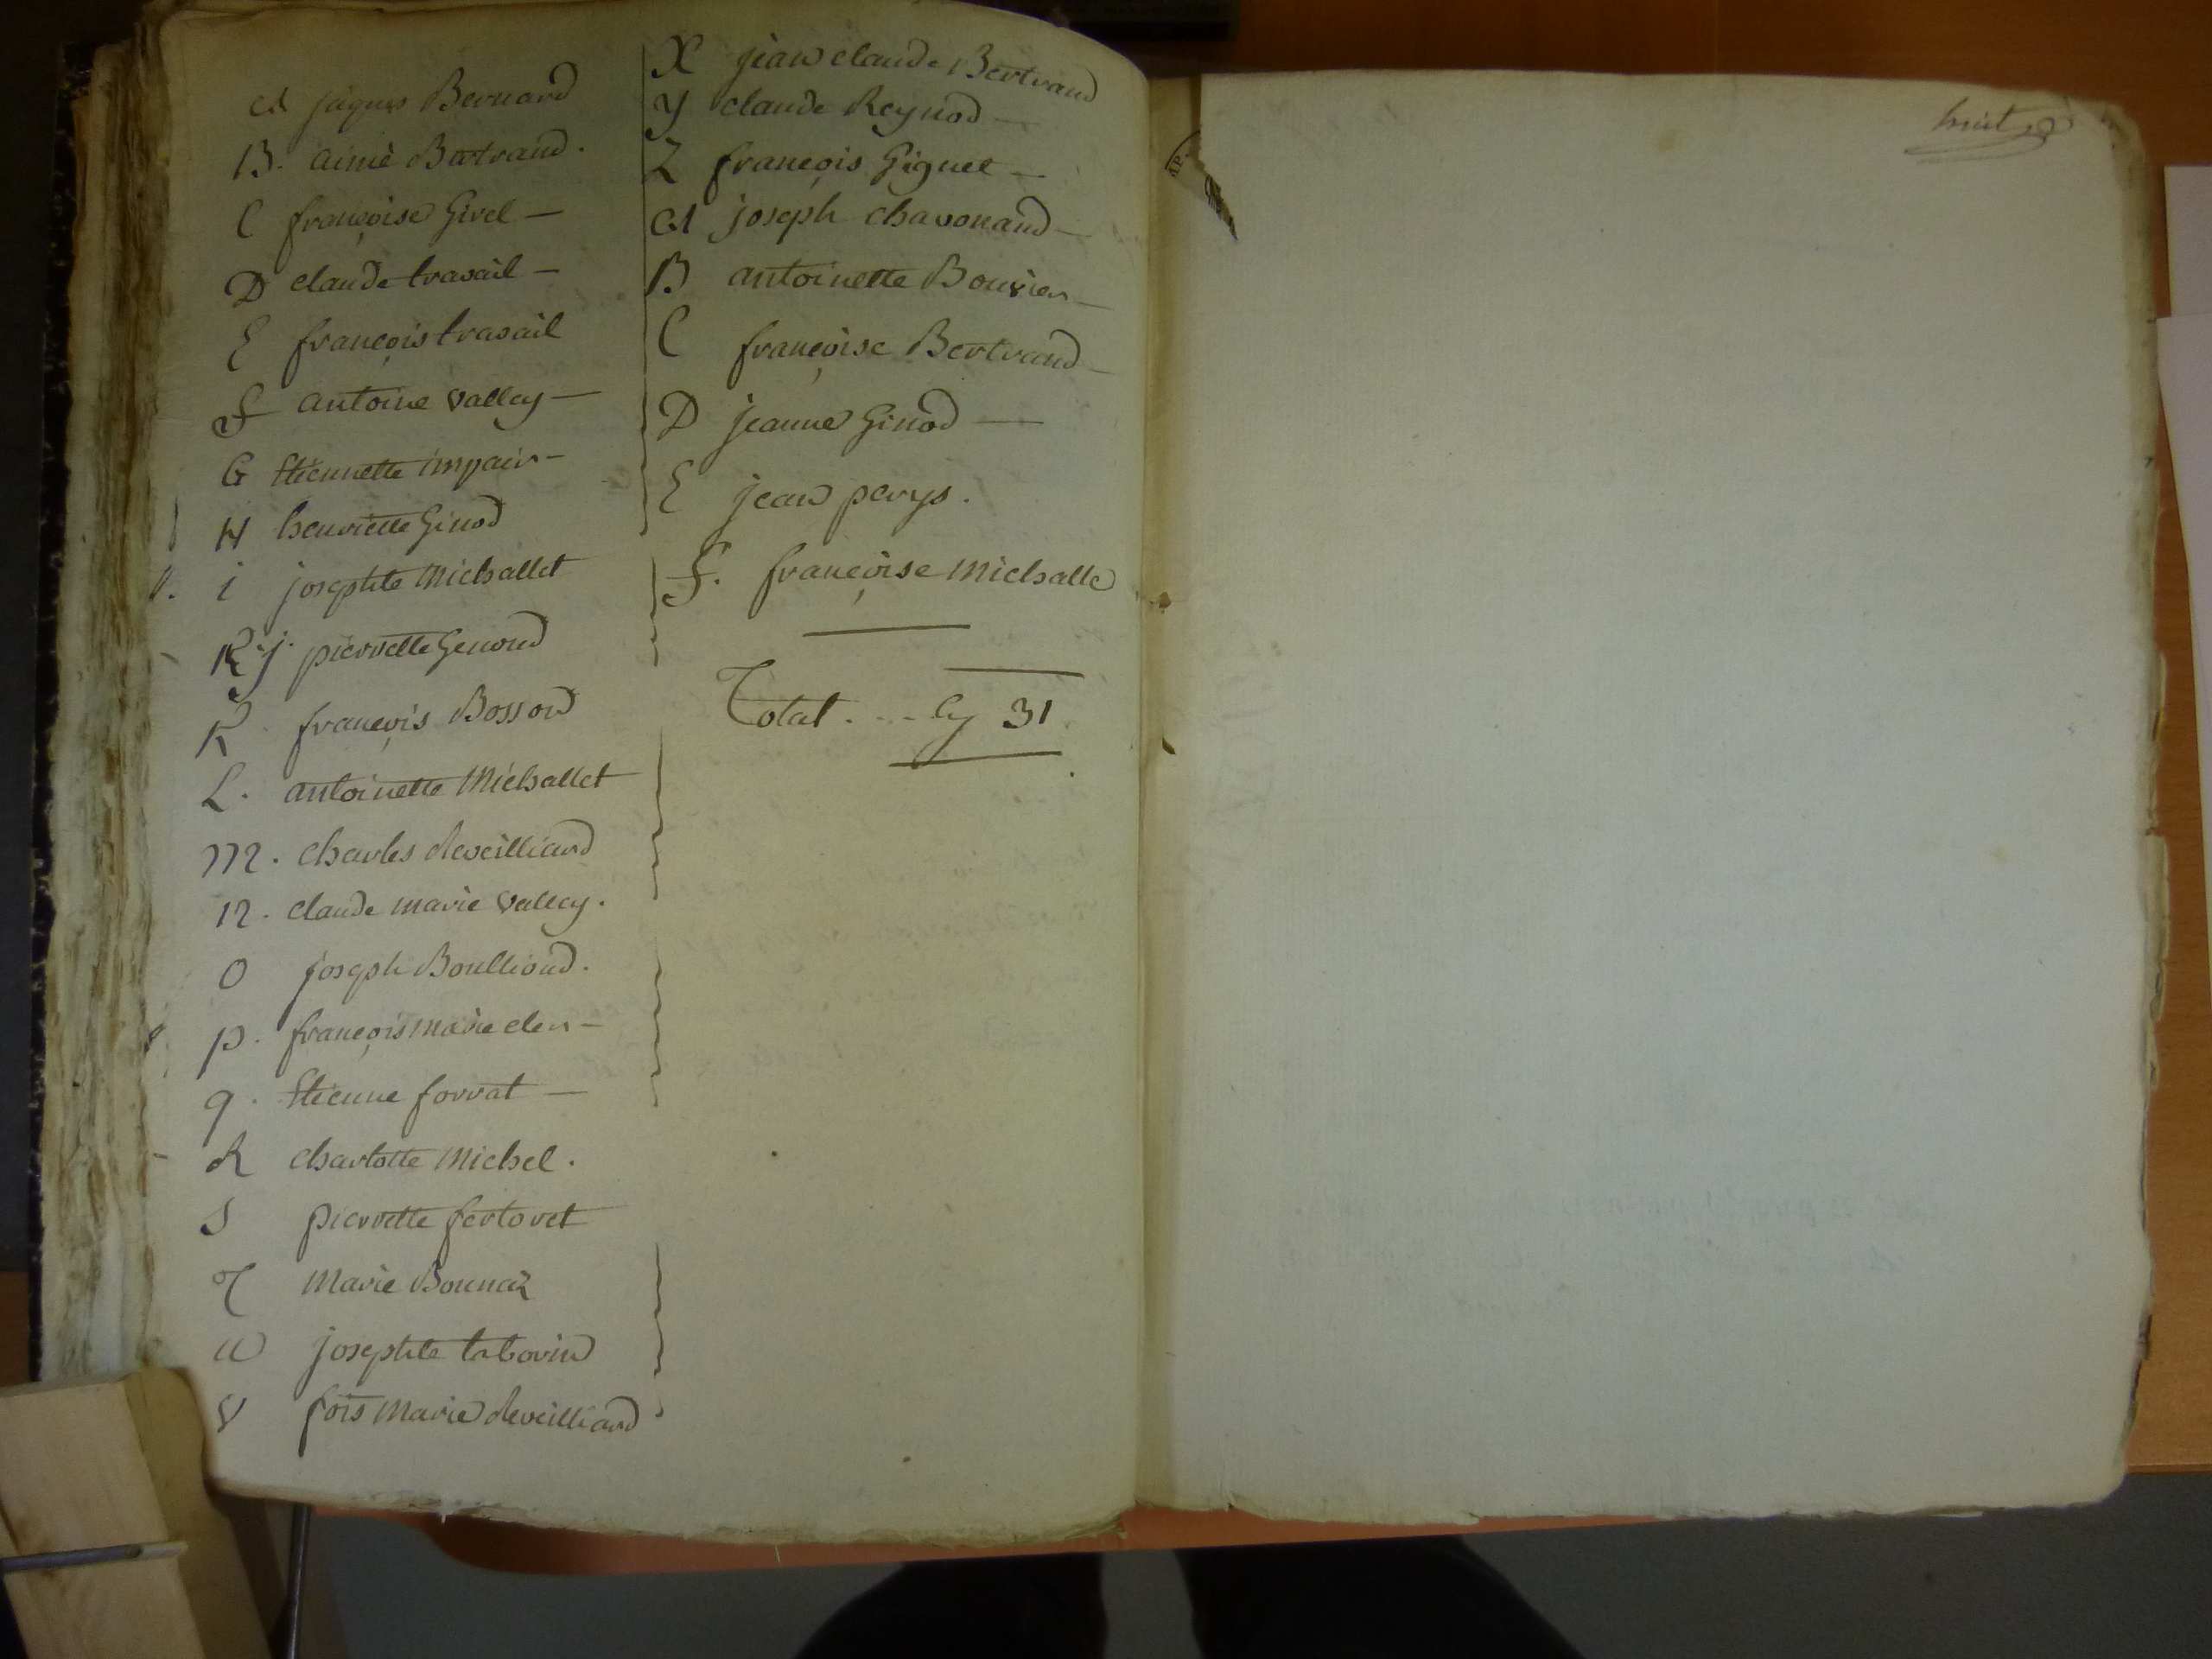 A jaques Bernard
B. aimé Bertrand.
C françoise Girel —
D claude travail —
E françois travail
F antoine valley —
G Etiennette impair —
H henriette Ginod
i josephte Michallet
K j. pierrette Genoud
K françois Bosson
L. antoinette Michallet
M. charles Reveilliard
N. claude marie valley.
O joseph Boullioud.
p. françois marie
q. Etienne forrat —
R charlotte Michel.
S pierrette fertoret
T Marie Bonnaz
U josephte
V fois Marie Reveilliard
X jean claude Bertrand
y claude Reynod —
Z françois Giguet —
A joseph chavonand —
B antoinette Bouvier —
C françoise Bertrand —
D jeanne Ginod —
E jean perys.
F. françoise Michalle
Total . - - - cy 31
huit